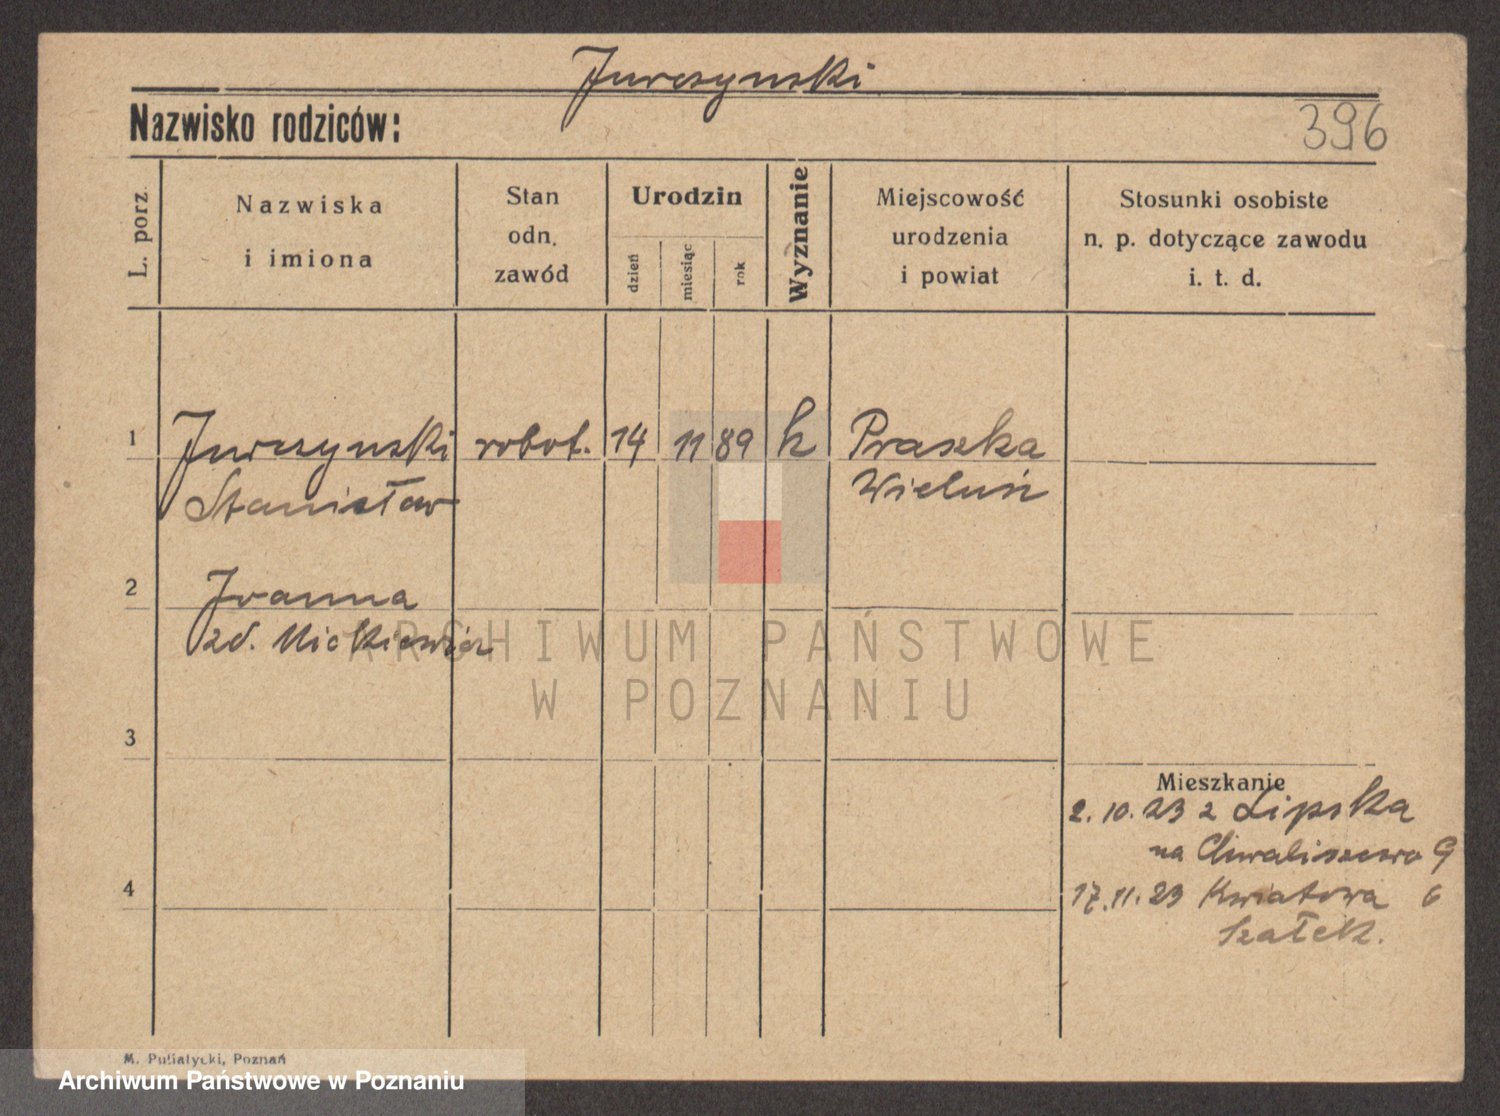 Jurczynski
Nazwisko rodziców:
396
L. porz.
Nazwiska
i imiona
Stan
odn.
zawód
Urodzin
dzień
miesiąc
rok
Wyznanie
Miejscowość
urodzenia
i powiat
Stosunki osobiste
n. p. dotyczące zawodu
i. t. d.
1 Jurczynski robot. 14 11 89 k Praszka
Stanisław Wieluń
2 Joanna
zd. Mickiewicz
ARCHIWUM PAŃSTWOWE
W POZNANIU
3
Mieszkanie
2.10.23 z Lipska
na Chwaliszewo 9
4
17.11.23 Kwiatowa 6
M. Pusiatycki, Poznań
Archiwum Państwowe w Poznaniu